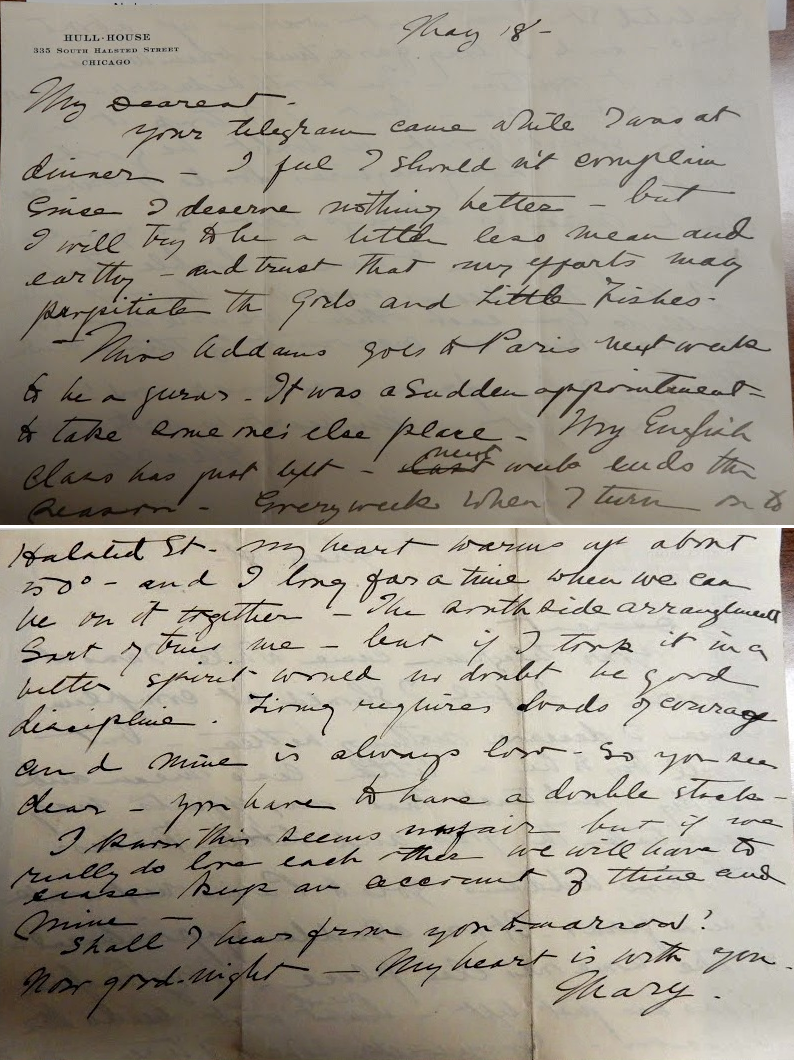 HULL-HOUSE
335 SOUTH HALSTED STREET
CHICAGO
May 18-
My Dearest -
your telegram came while I was at
dinner - I feel I should n't complain
Since I deserve nothing better - but
I will try to be a little less mean and
earthy - and trust that my efforts may
propitiate the Gods and Little Fishes -
Miss Addams goes to Paris next week
to be a juror - It was a sudden appointment -
to take some one's else place - My English
class has just left - last next week ends the
season - Every week when I turn on to
Halsted St - my heart warms up about
50° - and I long for a time when we can
be on it together - The south side arrangement
Sort of tries me - but if I took it in a
better spirit would no doubt be good
discipline. Living requires loads of courage
and mine is always low - So you see
dear - you have to have a double stock -
I know this seems unfair but if we
really do love each other we will have to
cease keep an account of thine and
Mine -
Shall I hear from you tomorrow?
Now good-night - My heart is with you.
Mary.